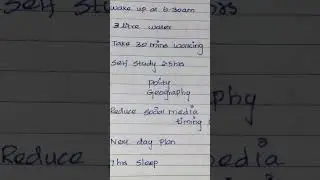 Wake up at 6:30am
3 litre water
Take 30 mins walking
Self study 2.5hrs
Polity
Geography
Reduce social media
timing
Next day plan
7hrs sleep